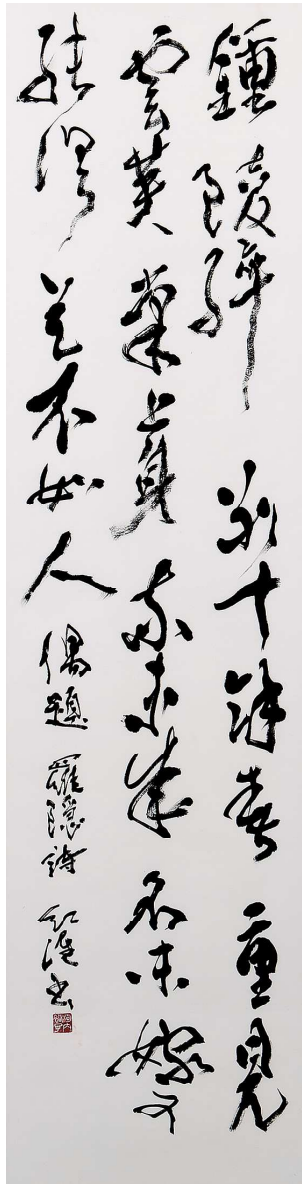 鍾陵醉別十餘春重見
雲英掌上身我未成名未嫁可
能俱是不如人 偶題 羅隱詩 書